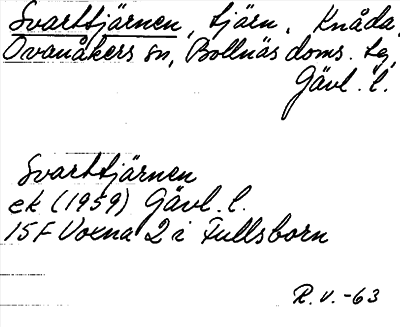 Svarttjärnen, tjärn, Knåda,
Ovanåkers sn, Bollnäs doms. tg,
Gävl. l.
Svarttjärnen
ek (1959) Gävl. l.
15F Voxna 2 i Fullsborn
R.V.-63